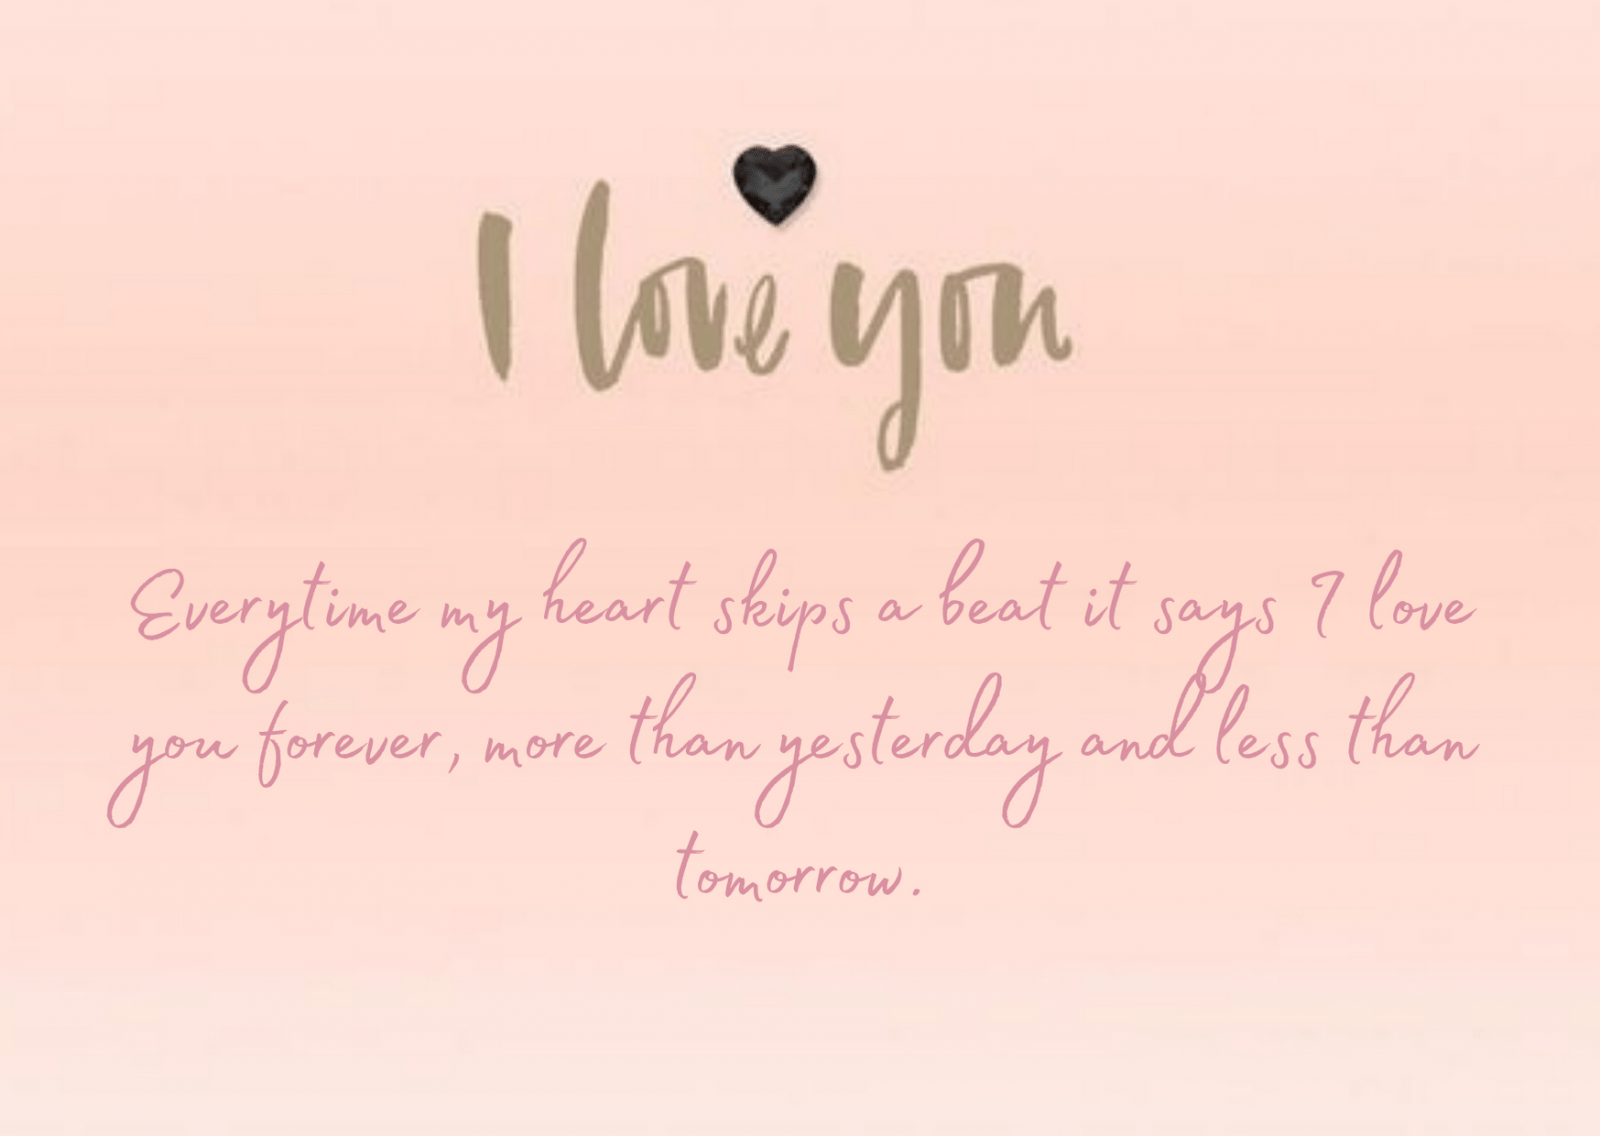 I love you
Everytime my heart skips a beat it says I love
you forever, more than yesterday and less than
tomorrow.